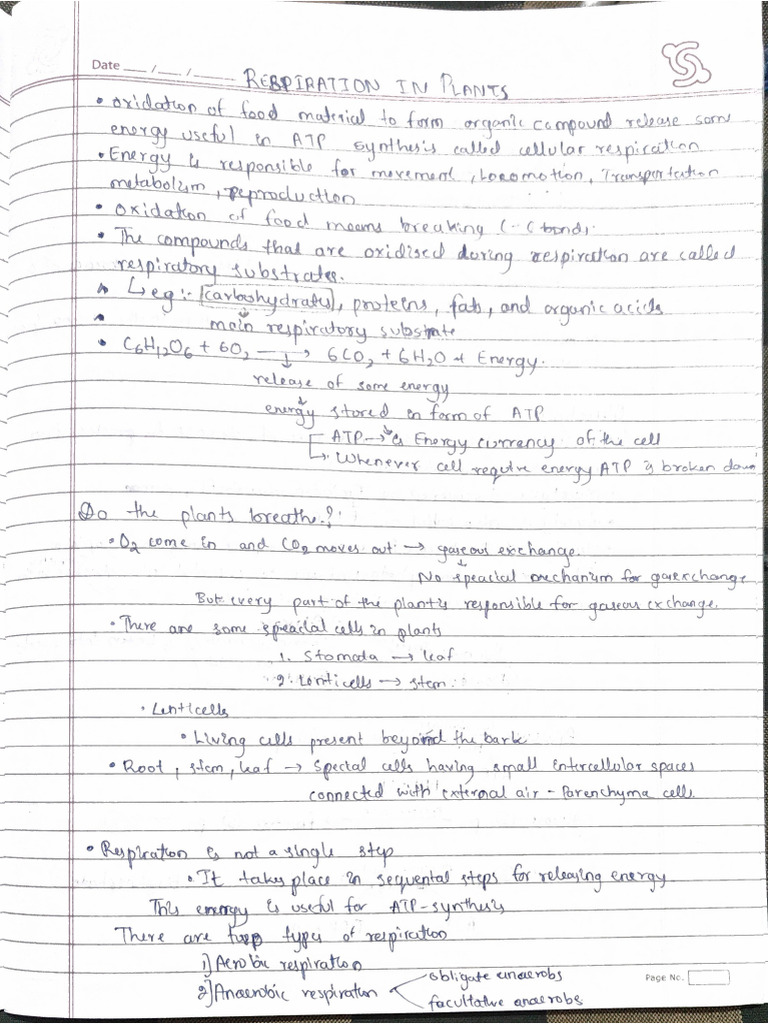 Date ___/___/_____
RESPIRATION IN PLANTS
• oxidation of food material to form organic compound release som
energy useful in ATP synthesis called cellular respiration
• Energy is responsible for movement, Locomotion, Transportation
metabolism, reproduction
• oxidation of food means breaking C-C bond.
• The compounds that are oxidised during respiration are called
respiratory substrates.
↳ eg:- [carbohydrates], proteins, fats, and organic acids
main respiratory substrate
• C6H12O6 + 6O2 → 6CO2 + 6H2O + Energy.
release of some energy
energy stored in form of ATP
ATP → is Energy currency of the cell
↳ Whenever cell require energy ATP is broken down
Do the plants breathe?
• O2 come in and CO2 moves out → gaseous exchange.
No speacial mechanism for gasexchange
But every part of the plant is responsible for gaseous exchange.
• There are some speacial cells in plants
1. Stomata → leaf
2. Lenticells → stem.
• Lenticells
• Living cells present beyond the bark
• Root, stem, leaf → Special cells having small intercellular spaces
connected with external air - Parenchyma cells.
• Respiration is not a single step
• It takes place in sequental steps for releasing energy
This energy is useful for ATP-synthesis
There are two types of respiration
1) Aerobic respiration
2) Anaerobic respiration
obligate anaerobs
facultative anaerobs
Page No.